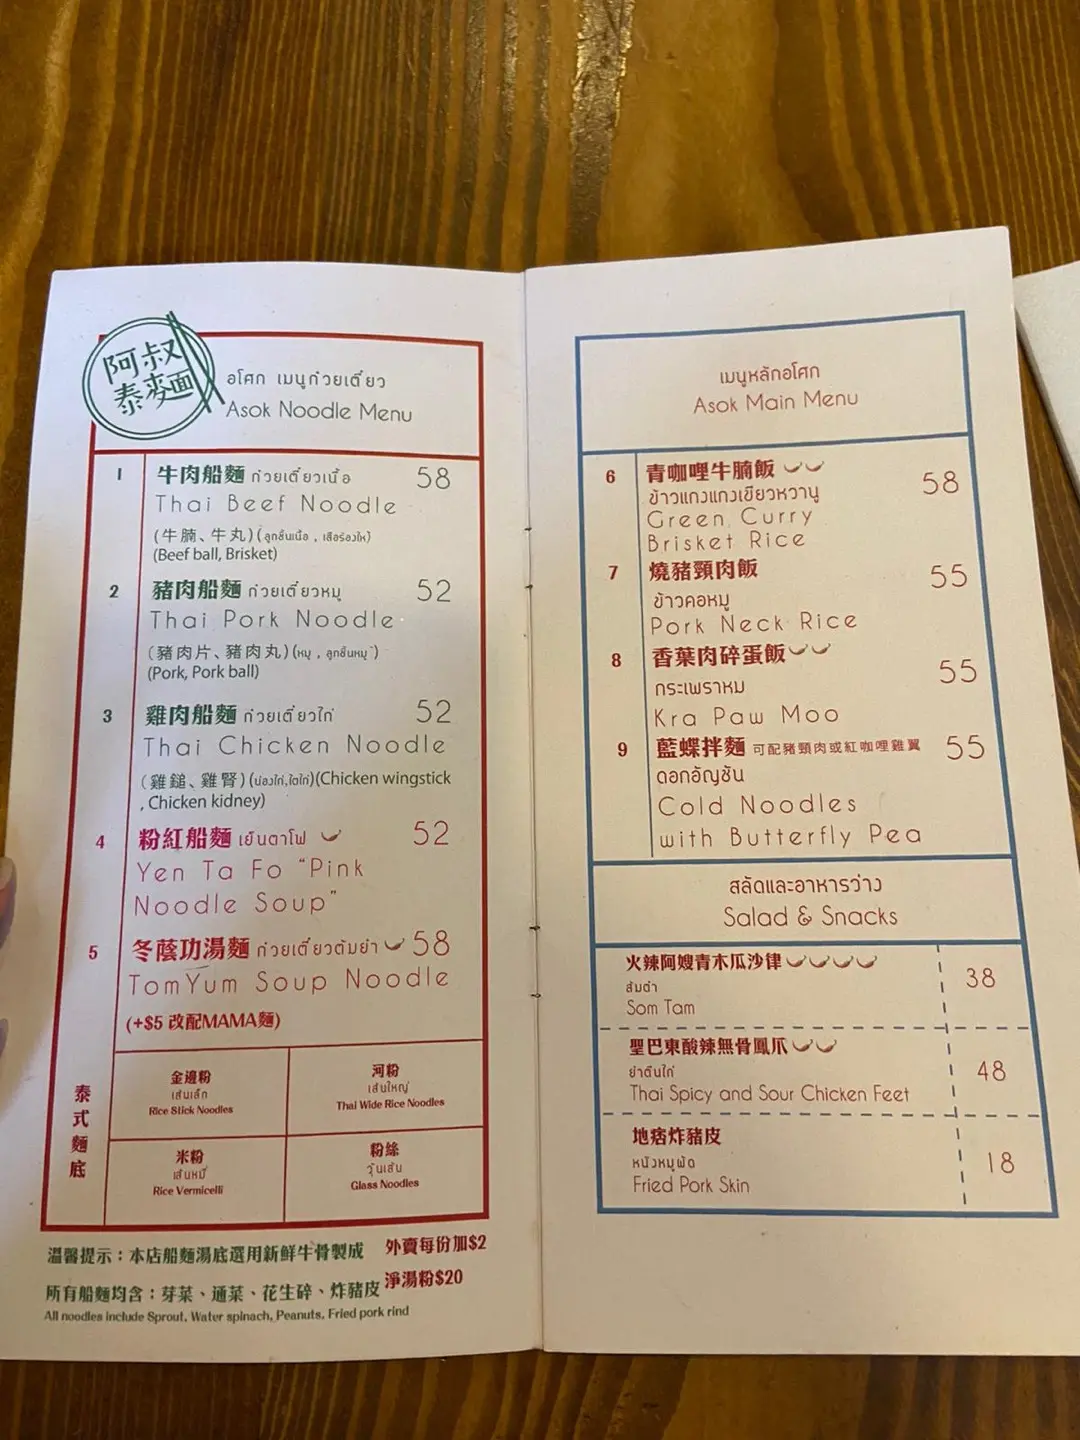 阿叔
泰麥面
อโศก เมนูก๋วยเตี๋ยว
Asok Noodle Menu
1 牛肉船麵 ก๋วยเตี๋ยวเนื้อ 58
Thai Beef Noodle
(牛腩、牛丸)(ลูกชิ้นเนื้อ , เสือร้องไห้)
(Beef ball, Brisket)
2 豬肉船麵 ก๋วยเตี๋ยวหมู 52
Thai Pork Noodle
(豬肉片、豬肉丸)(หมู , ลูกชิ้นหมู)
(Pork, Pork ball)
3 雞肉船麵 ก๋วยเตี๋ยวไก่ 52
Thai Chicken Noodle
(雞鎚、雞腎)(น่องไก่,ไตไก่)(Chicken wingstick
, Chicken kidney)
4 粉紅船麵 เย็นตาโฟ 52
Yen Ta Fo "Pink
Noodle Soup"
5 冬蔭功湯麵 ก๋วยเตี๋ยวต้มยำ 58
TomYum Soup Noodle
(+$5 改配MAMA麵)
泰式麵底
金邊粉
เส้นเล็ก
Rice Stick Noodles
河粉
เส้นใหญ่
Thai Wide Rice Noodles
米粉
เส้นหมี่
Rice Vermicelli
粉絲
วุ้นเส้น
Glass Noodles
溫馨提示：本店船麵湯底選用新鮮牛骨製成 外賣每份加$2
所有船麵均含：芽菜、通菜、花生碎、炸豬皮 淨湯粉$20
All noodles include Sprout, Water spinach, Peanuts, Fried pork rind
เมนูหลักอโศก
Asok Main Menu
6 青咖哩牛腩飯 58
ข้าวแกงแกงเขียวหวานู
Green Curry
Brisket Rice
7 燒豬頸肉飯 55
ข้าวคอหมู
Pork Neck Rice
8 香葉肉碎蛋飯 55
กระเพราหม
Kra Paw Moo
9 藍蝶拌麵 可配豬頸肉或紅咖哩雞翼 55
ดอกอัญชัน
Cold Noodles
with Butterfly Pea
สลัดและอาหารว่าง
Salad & Snacks
火辣阿嫂青木瓜沙律 38
ส้มตำ
Som Tam
聖巴東酸辣無骨鳳爪 48
ยำตีนไก่
Thai Spicy and Sour Chicken Feet
地痞炸豬皮 18
หนังหมูผัด
Fried Pork Skin